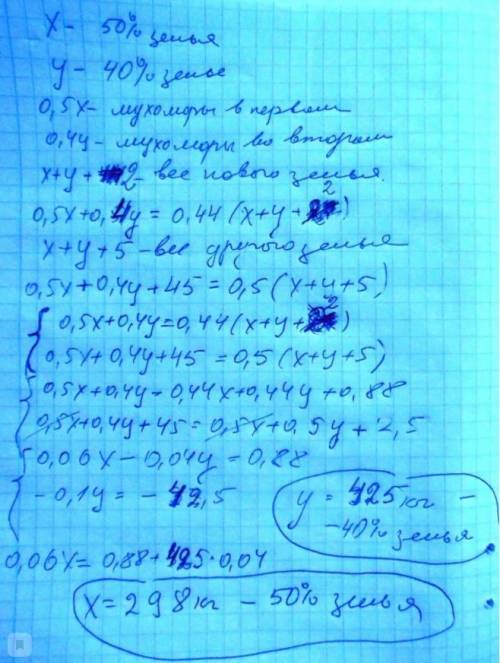 x - 50% зелья
y - 40% зелье
0,5x - мухоморы в первом
0,4y - мухоморы во втором
x+y+2 - вес нового зелья.
0,5x+0,4y = 0,44(x+y+2)
x+y+5 - вес другого зелья
0,5x+0,4y+45 = 0,5(x+y+5)
0,5x+0,4y=0,44(x+y+2)
0,5x+0,4y+45 = 0,5(x+y+5)
0,5x+0,4y-0,44x+0,44y+0,88
0,5x+0,4y+45=0,5x+0,5y+2,5
0,06x-0,04y=0,88
-0,1y= -42,5
y = 425 кг -
-40% зелья
0,06x= 0,88+425·0,04
x=298 кг - 50% зелья